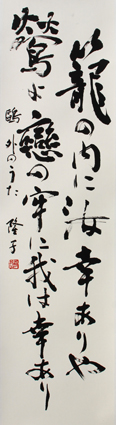 籠の内に汝幸ありや
鶯よ戀の牢に我は幸あり
鷗外のうた 隆子